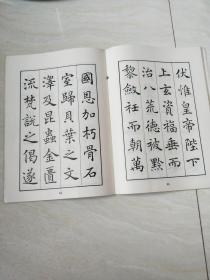 伏惟皇帝陛下
上玄資福垂而
治八荒德被黔
黎斂衽而朝萬
國恩加朽骨石
室歸貝葉之文
澤及昆蟲金匱
流梵說之偈遂